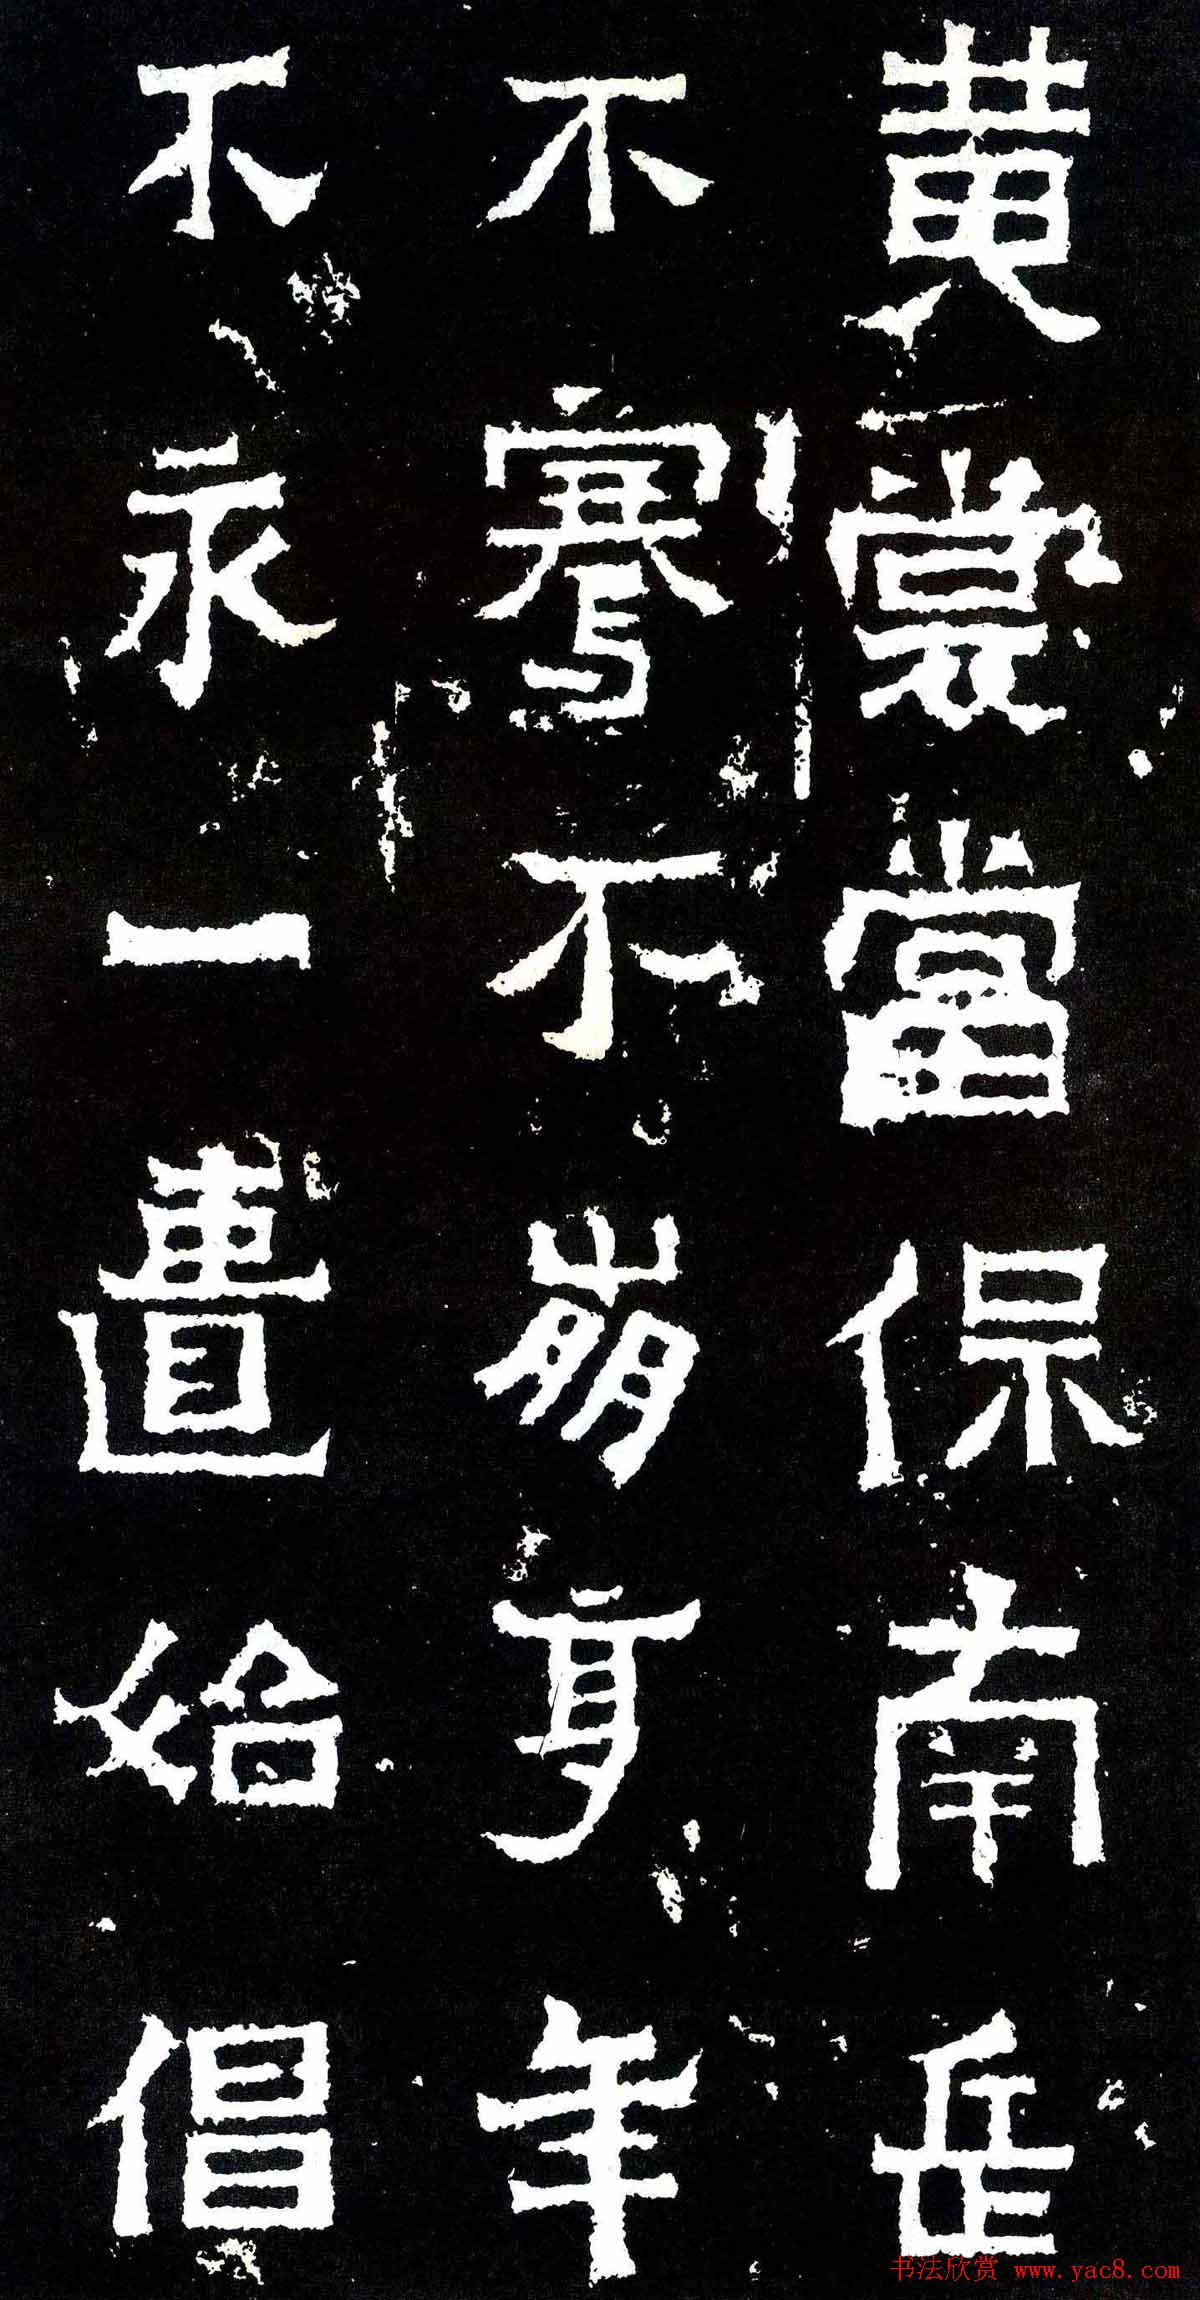 黄裳當保南岳
不骞不崩享年
不永一匱始倡
书法欣赏 www.yac8.com